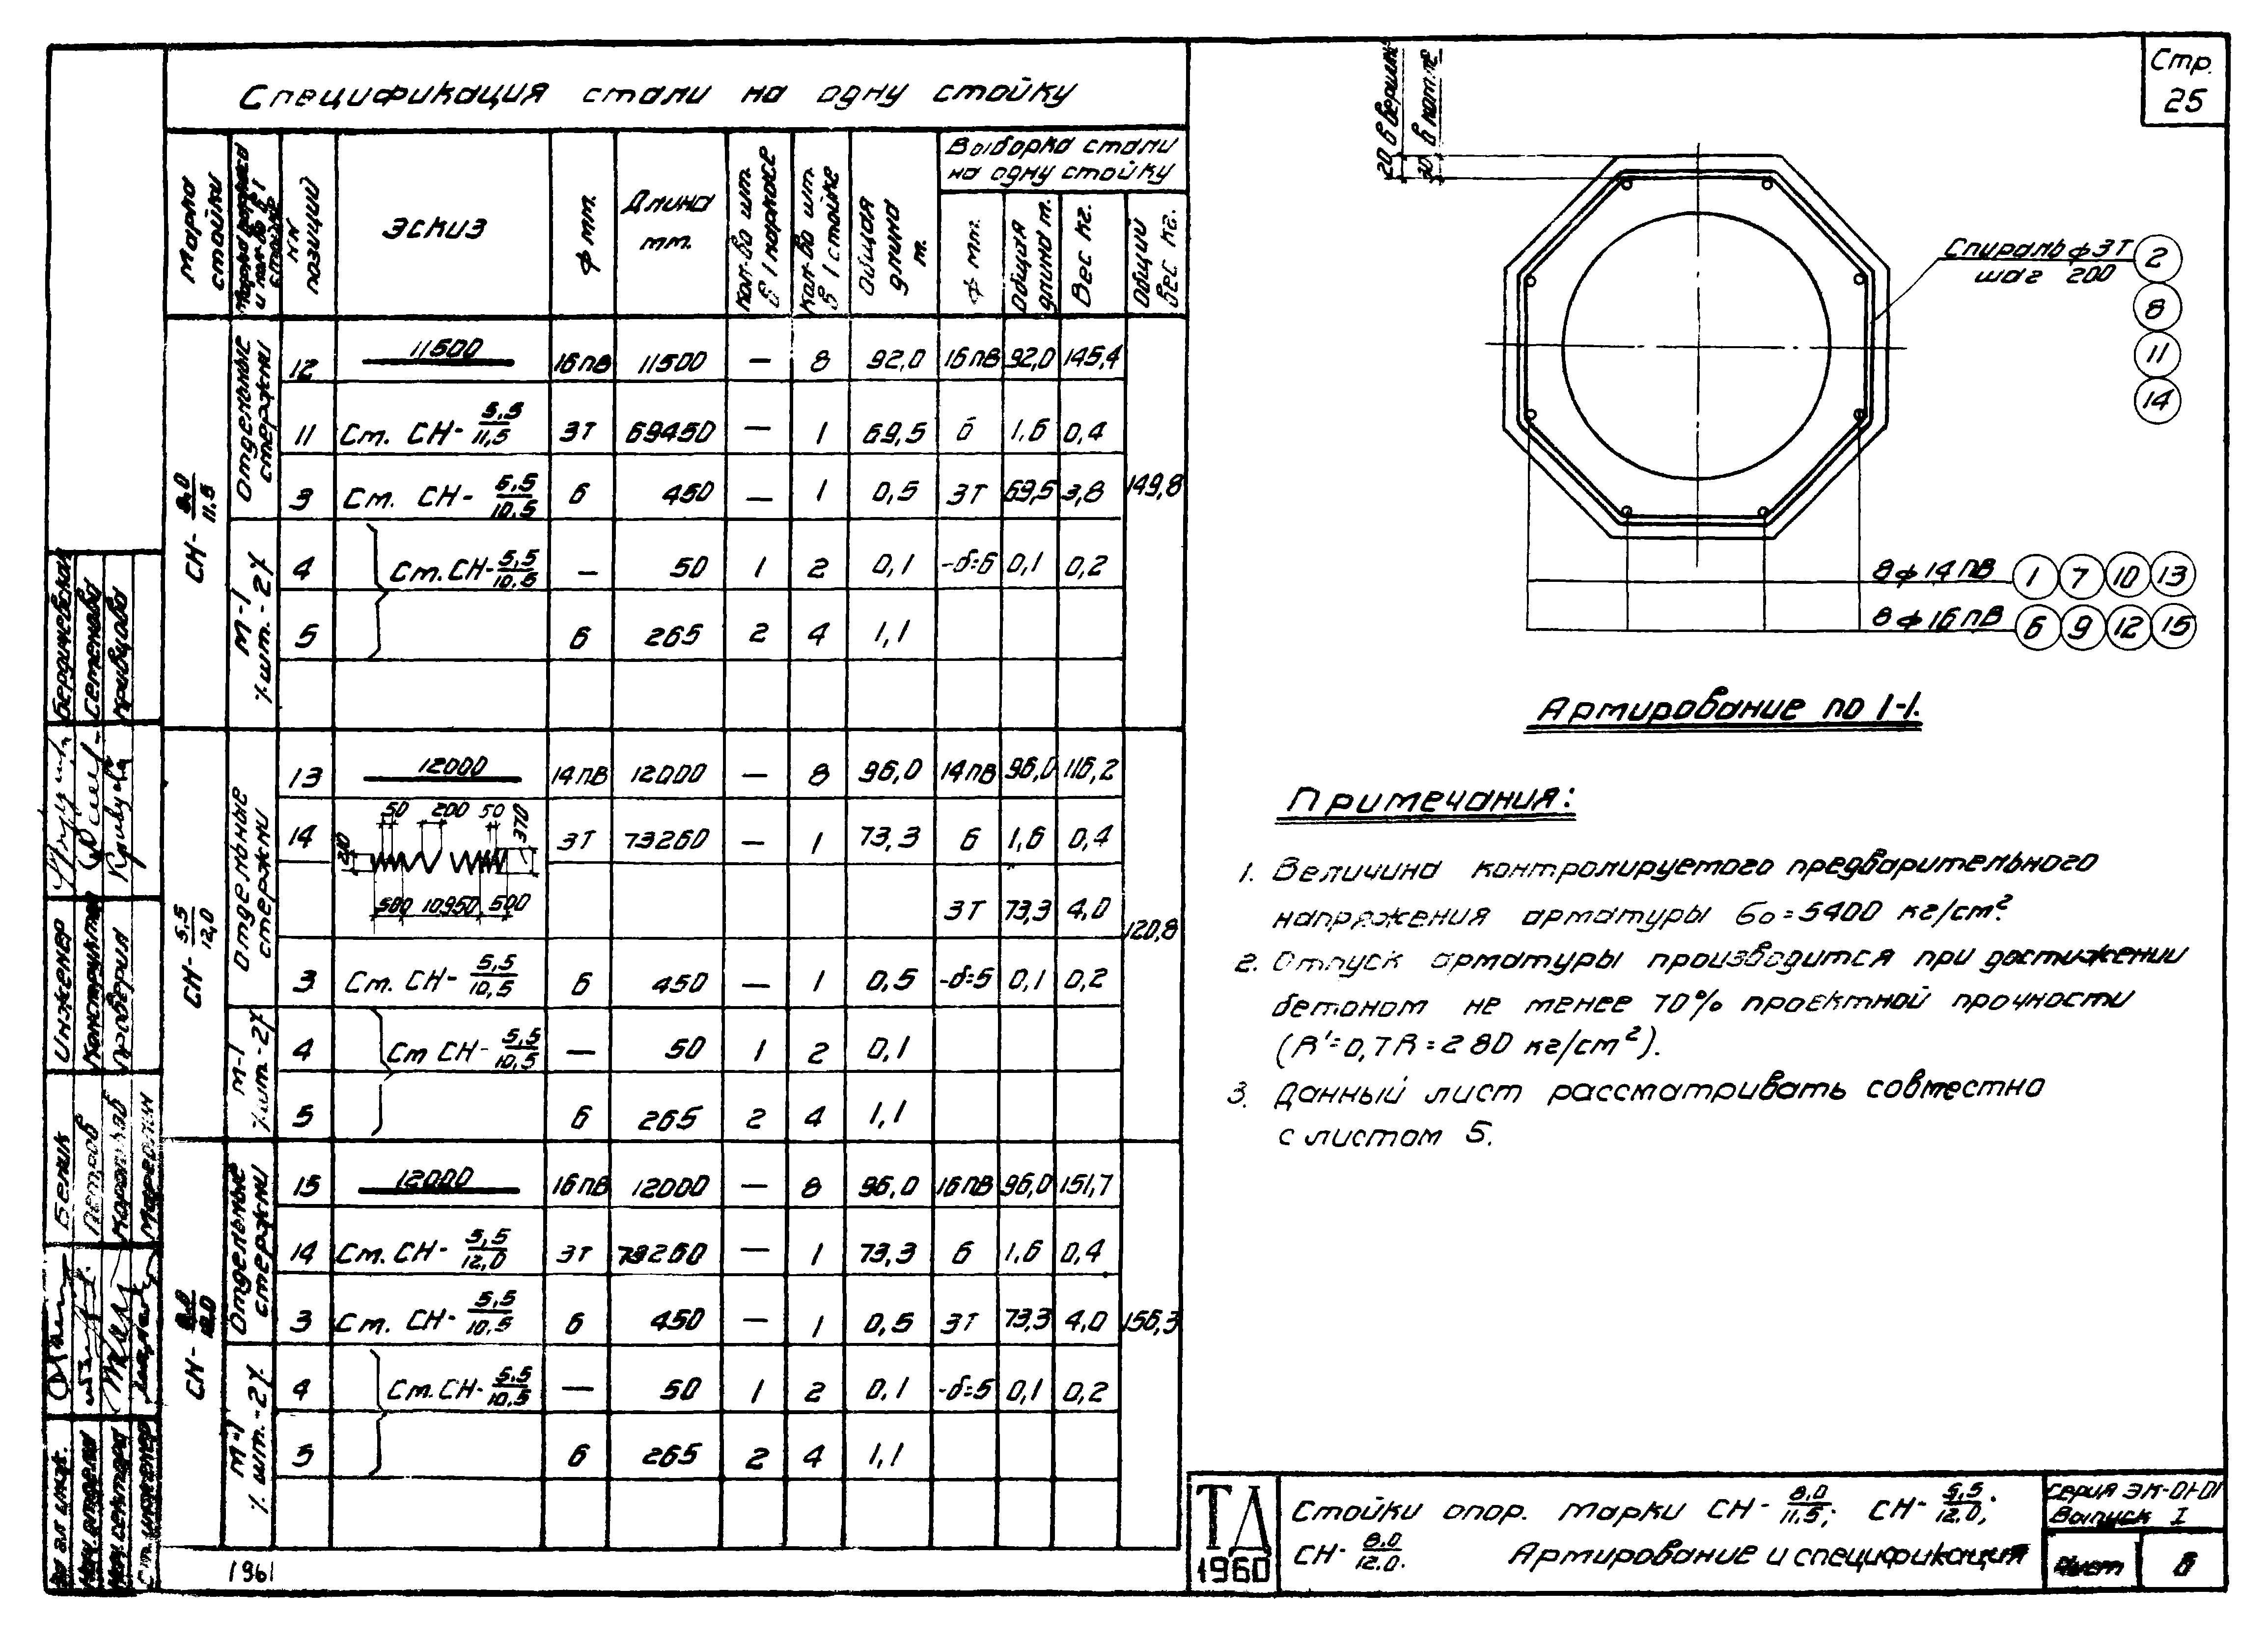 Спецификация стали на одну стойку
Марка стойки
NN позиций
Эскиз
ф мм.
Длина мм.
Кол-во шт. в 1 каркасе
Кол-во шт. в 1 стойке
Общая длина м.
Выборка стали на одну стойку
ф мм.
Общая длина м.
Вес кг.
Общий вес кг.
СН- 8,0/11.5
Отдельные стержни
12 11500 16пв 11500 — 8 92,0 16пв 92,0 145,4
11 Ст. СН- 5,5/11,5 3т 69450 — 1 69,5 6 1,6 0,4
3 Ст. СН- 5,5/10.5 6 450 — 1 0,5 3т 69,5 3,8
149,8
М-1 шт.-2
4 Ст. СН- 5,5/10,5 — 50 1 2 0,1 -δ=6 0,1 0,2
5 6 265 2 4 1,1
СН- 5.5/12,0
Отдельные стержни
13 12000 14пв 12000 — 8 96,0 14пв 96,0 116,2
14 3т 73260 — 1 73,3 6 1,6 0,4
50 200 50
370
210
500 10950 500
3т 73,3 4,0
120,8
3 Ст. СН- 5,5/10,5 6 450 — 1 0,5 -δ=5 0,1 0,2
М-1 шт.-2
4 Ст СН- 5,5/10,5 — 50 1 2 0,1
5 6 265 2 4 1,1
СН- 8.0/12.0
Отдельные стержни
15 12000 16пв 12000 — 8 96,0 16пв 96,0 151,7
14 Ст. СН- 5,5/12,0 3т 73260 — 1 73,3 6 1,6 0,4
3 Ст. СН- 5,5/10,5 6 450 — 1 0,5 3т 73,3 4,0
156,3
М-1 шт.-2
4 Ст. СН- 5,5/10,5 — 50 1 2 0,1 -δ=5 0,1 0,2
5 6 265 2 4 1,1
1961
Стр. 25
20 в вершине
30 в комле
Спираль ф 3т
шаг 200
2
8
11
14
8ф14пв 1 7 10 13
8ф16пв 6 9 12 15
Армирование по 1-1.
Примечания:
1. Величина контролируемого предварительного
напряжения арматуры бо=5400 кг/см².
2. Отпуск арматуры производится при достижении
бетоном не менее 70% проектной прочности
(R'=0,7R=280 кг/см²).
3. Данный лист рассматривать совместно
с листом 5.
ТД
1960
Стойки опор. марки СН- 8.0/11.5; СН- 5,5/12.0;
СН- 8.0/12.0. Армирование и спецификация
Серия ЭК-01-01
Выпуск I
Лист 6
Инженер
Конструктор
Проверил
Бердичевская
Семенова
Кривцова
Белик
Петров
Нач. отдела
Нач. сектора
Ст. инженер